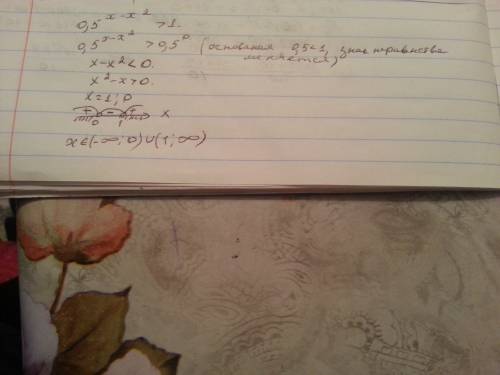 0,5^{x-x^2} > 1.
0,5^{x-x^2} > 0,5^0 (основания 0,5<1, знак неравенства меняется)
x-x^2<0.
x^2-x>0.
x=1; 0
+ - + x
0 1
x∈(-∞; 0)∪(1; ∞)